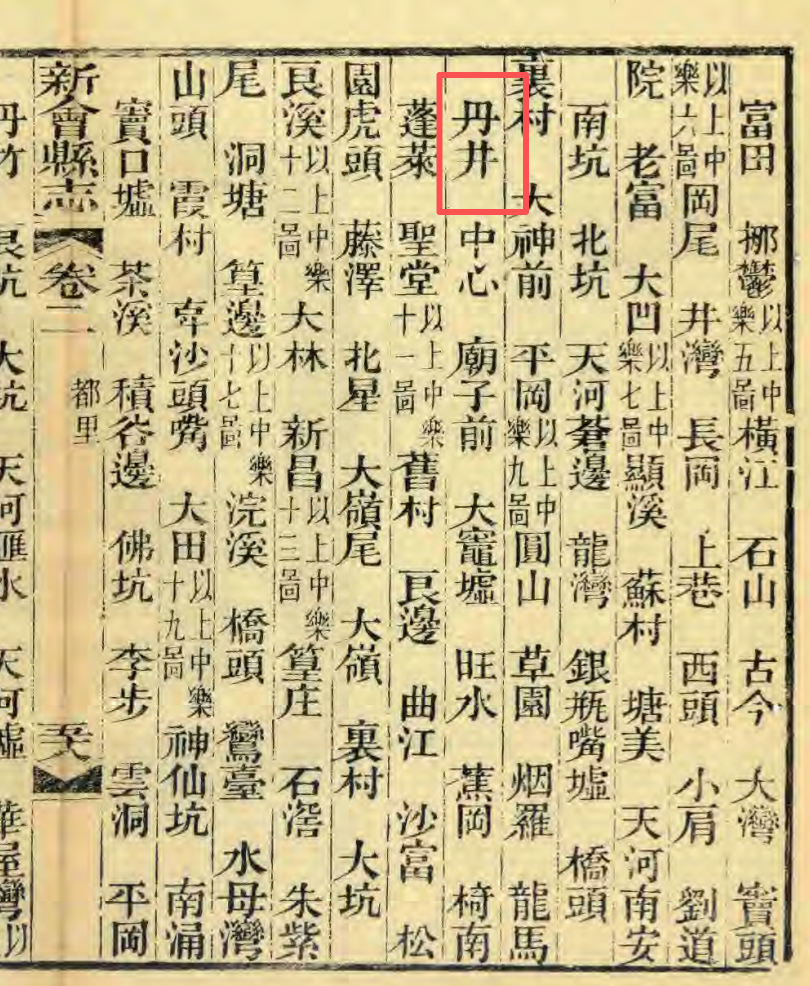 富田 挪鬱以上中樂五啚橫江 石山 古今 大灣 竇頭
以上中樂六啚岡尾 井灣 長岡 上巷 西頭 小肩 劉道
院 老富 大凹以上中樂七啚顯溪 蘇村 塘美 天河南安
南坑 北坑 天河蒼邊 龍灣 銀瓶嘴墟 橋頭
裏村 大神前 平岡以上中樂九啚圓山 草園 烟羅 龍馬
丹井 中心 廟子前 大竈墟 旺水 蕉岡 椅南
蓬萊 聖堂以上中樂十一啚舊村 艮邊 曲江 沙富 松
園虎頭 藤澤 北星 大嶺尾 大嶺 裏村 大坑
艮溪以上中樂十二啚大林 新昌以上中樂十三啚篁庄 石滘 朱紫
尾 洞塘 篁邊以上中樂十七啚浣溪 橋頭 鸞臺 水母灣
山頭 霞村 𡶶沙頭嘴 大田以上中樂十九啚神仙坑 南涌
竇口墟 茶溪 積谷邊 佛坑 李步 雲洞 平岡
新會縣志 卷二 都里
丹竹 艮坑 大坑 天河匯水 天河墟 華屋灣以